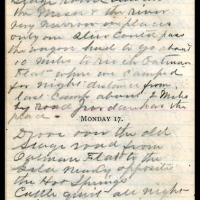 the Mesa & the River
Very Narrow in places
only one Slew Could pass
the wagon had to go about
10 Miles to Reach Oatman
Flat where we Camped
for Night distance from
last Camp about 5 Miles
by Road
place.
MONDAY 17.
Drove over the old
Stage road from
Oatman Flat to the
Gila Nearly opposite
The Hot Springs
Cattle quiet all night